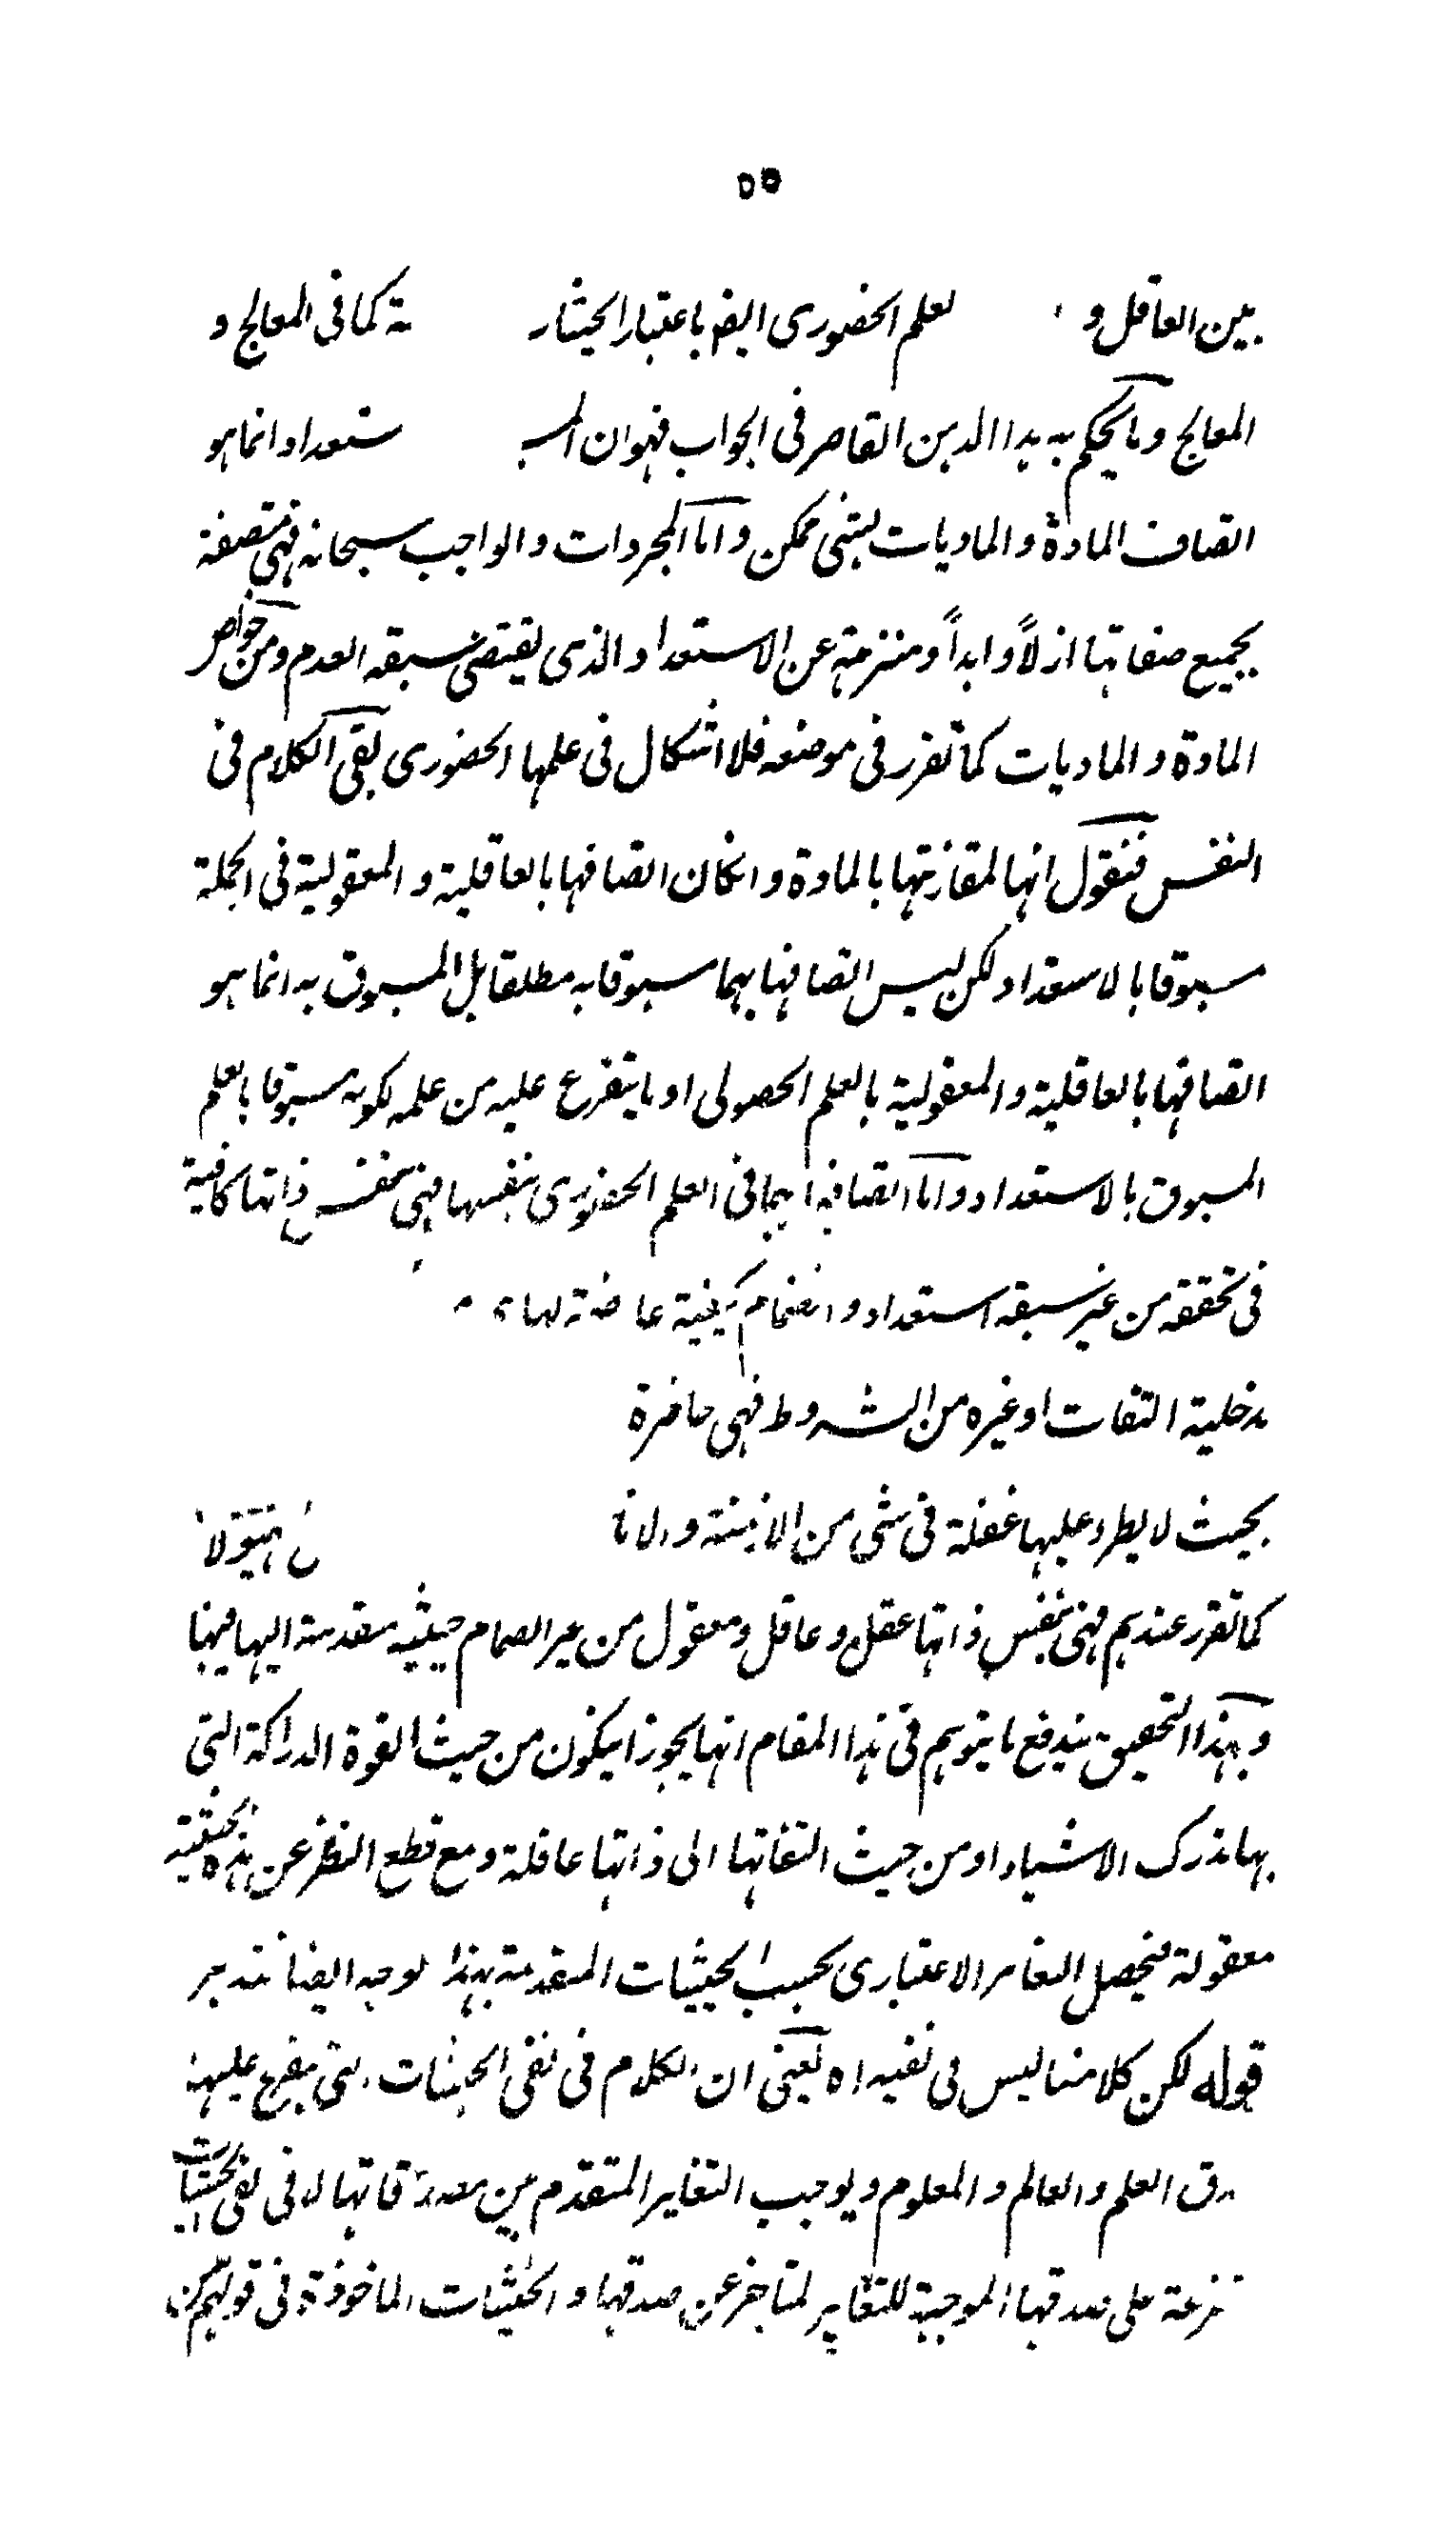 ٥٥
بين العاقل و لعلم الحضورى ايضا باعتبار الحيثيا ية كما فى المعالج و
المعالج وما يحكم به هذا الذهن القاصر فى الجواب فهو ان المسبـ ستعداد انما هو
اتصاف المادة والماديات بشئ ممكن واما المجردات والواجب سبحانه فهى متصفة
بجميع صفاتها ازلاً وابداً ومنزهة عن الاستعداد الذى يقتضى سبقه العدم ومن خواص
المادة والماديات كما تقرر فى موضعه فلا اشكال فى علمها الحضورى بقى الكلام فى
النفس فنقول انها لمقارنتها بالمادة وانكان اتصافها بالعاقلية والمعقولية فى الجملة
مسبوقا بالاستعداد لكن ليس اتصافها بهما مسبوقا به مطلقا بل المسبوق به انما هو
اتصافها بالعاقلية والمعقولية بالعلم الحصولى او ما يتفرع عليه من علمه لكونه مسبوقا بالعلم
المسبوق بالاستعداد واما اتصافها بهما فى العلم الحضورى بنفسها فهى بنفس ذاتها كافية
فى تحققه من غير سبقه استعداد وانضمام كيفية عارضة لها
مدخلية التفات او غيره من الشروط فهى حاضرة
بحيث لا يطرد عليها غفلة فى شئ من الازمنة والانا هيولا
كما تقرر عندهم فهى بنفس ذاتها عقل وعاقل ومعقول من غير انضمام حيثية متقدمة اليها فيها
وبهذا التحقيق يندفع ما يتوهم فى هذا المقام انها يجوز ان يكون من حيث القوة الدراكة التى
بها تدرك الاشياء او من حيث التفاتها الى ذاتها عاقلة ومع قطع النظر عن هذه الحيثية
معقولة فيحصل التغاير الاعتبارى بحسب الحيثيات المتقدمة بهذا لوجه ايضا فتدبر
قوله لكن كلامنا ليس فى نفيه اه يعنى ان الكلام فى نفى الحيثيات التى يتفرع عليها
دق العلم والعالم والمعلوم ويوجب التغاير المتقدم بين مصداقاتها لا فى نفى الحيثيات
تفرعة على صدقها الموجبة للتغاير لمتاخر عن صدقها والحيثيات الماخوذة فى قولهم من